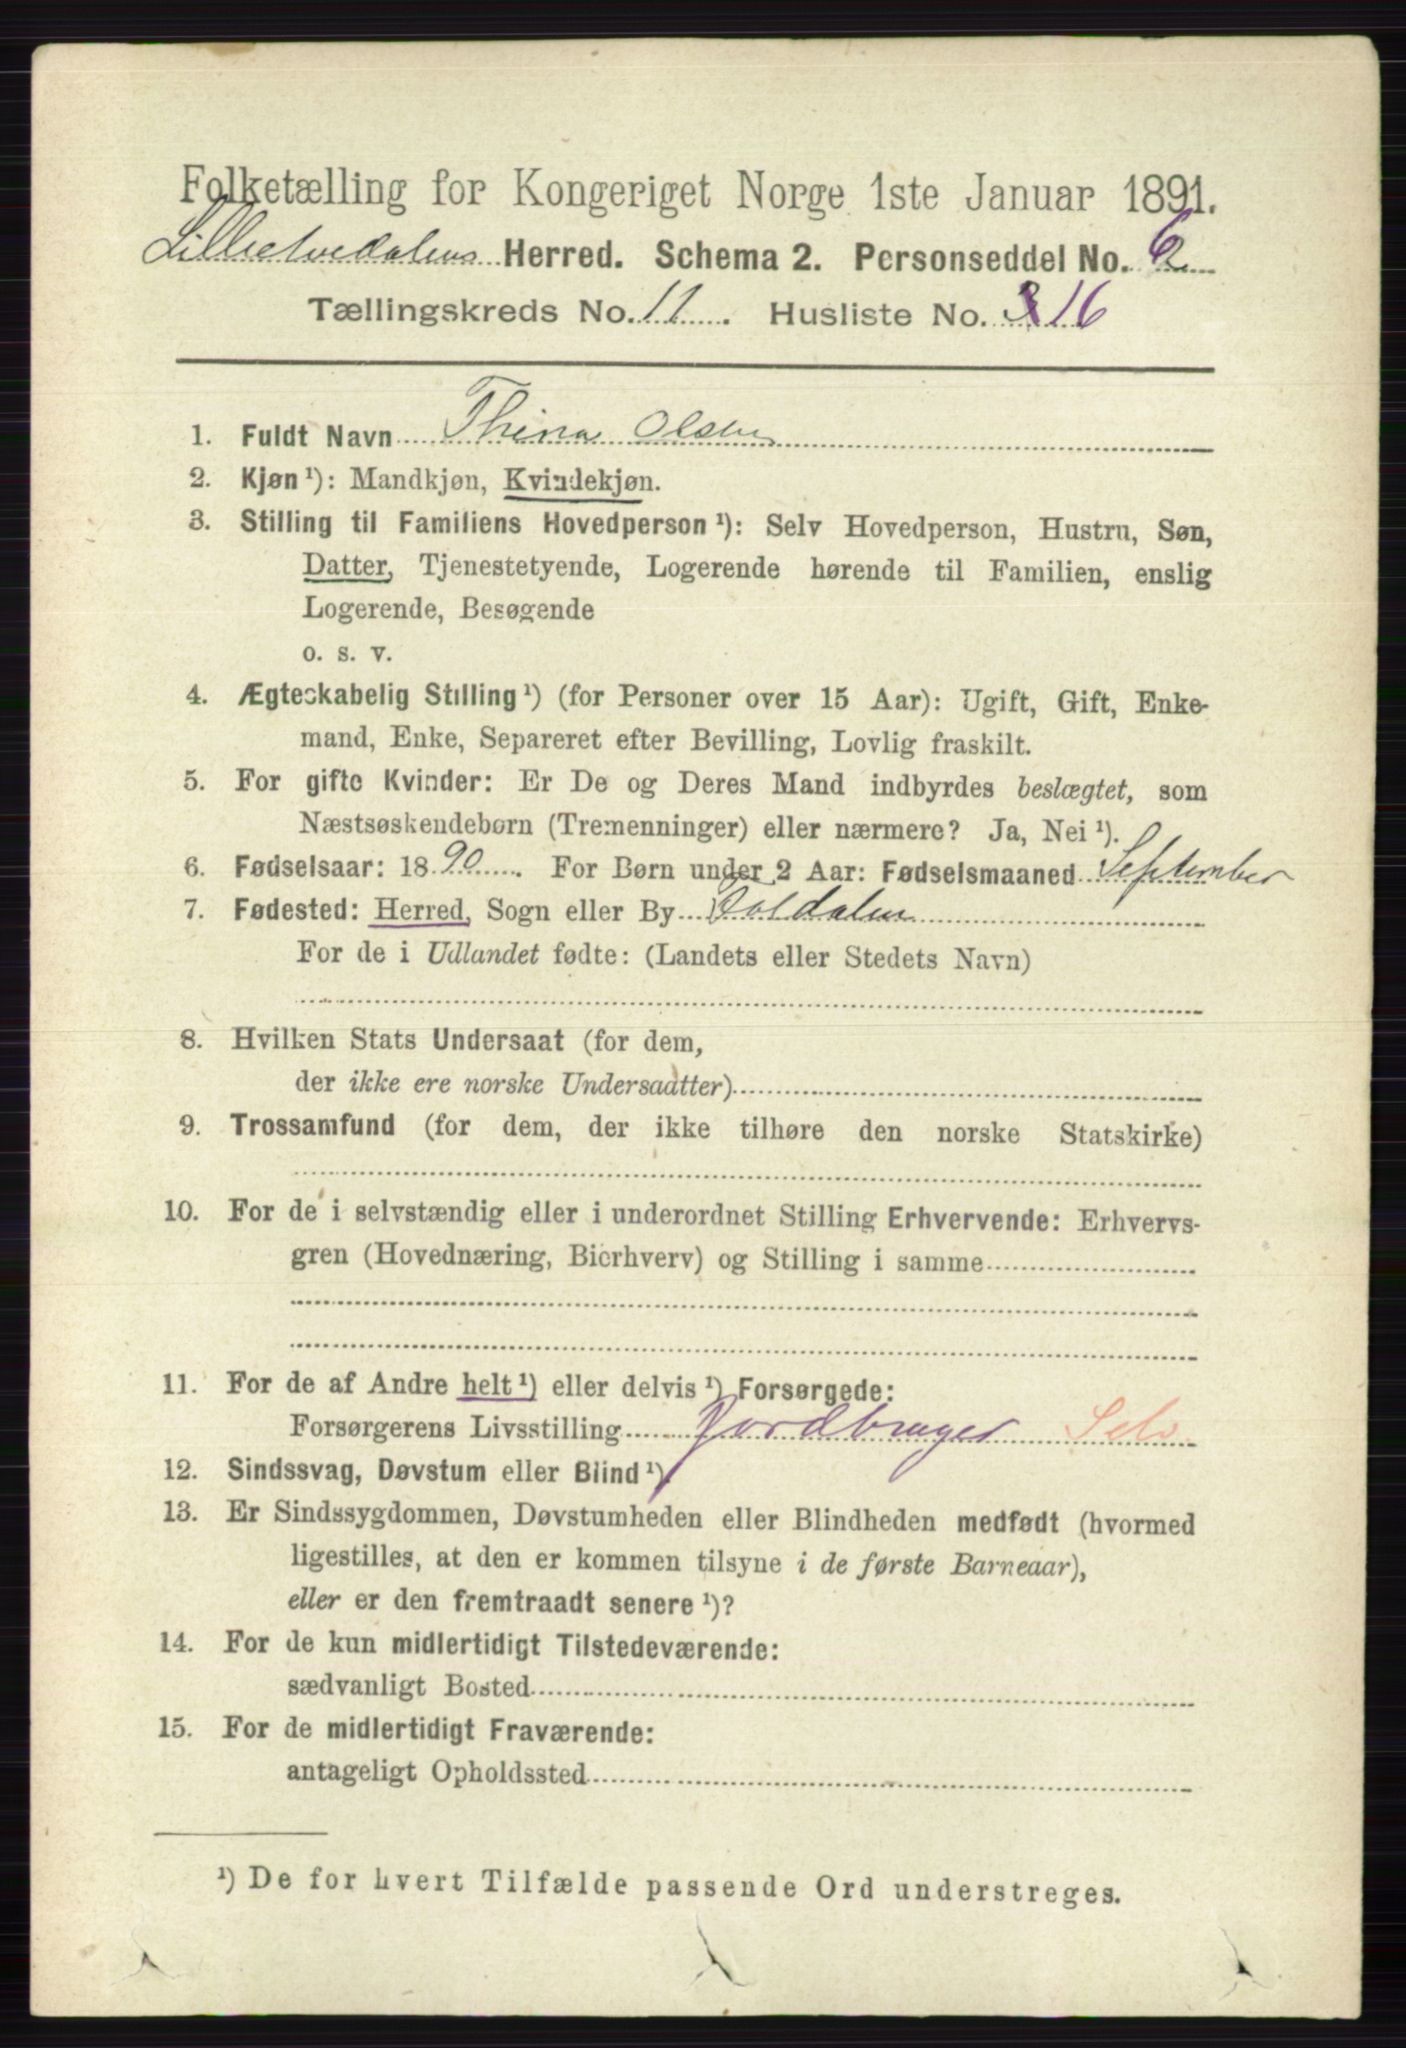 Folketælling for Kongeriget Norge 1ste Januar 1891.
Lilleelvedalens Herred. Schema 2. Personseddel No. 6
Tællingskreds No. 11. Husliste No. 3 16
1. Fuldt Navn Thina Olsen
2. Kjøn ¹): Mandkjøn, Kvindekjøn.
3. Stilling til Familiens Hovedperson ¹): Selv Hovedperson, Hustru, Søn,
Datter, Tjenestetyende, Logerende hørende til Familien, enslig
Logerende, Besøgende
o. s. v.
4. Ægteskabelig Stilling ¹) (for Personer over 15 Aar): Ugift, Gift, Enke-
mand, Enke, Separeret efter Bevilling, Lovlig fraskilt.
5. For gifte Kvinder: Er De og Deres Mand indbyrdes beslægtet, som
Næstsøskendebørn (Tremenninger) eller nærmere? Ja, Nei ¹).
6. Fødselsaar: 1890. For Børn under 2 Aar: Fødselsmaaned September
7. Fødested: Herred, Sogn eller By Foldalen
For de i Udlandet fødte: (Landets eller Stedets Navn)
8. Hvilken Stats Undersaat (for dem,
der ikke ere norske Undersaatter)
9. Trossamfund (for dem, der ikke tilhøre den norske Statskirke)
10. For de i selvstændig eller i underordnet Stilling Erhvervende: Erhvervs-
gren (Hovednæring, Bierhverv) og Stilling i samme
11. For de af Andre helt ¹) eller delvis ¹) Forsørgede:
Forsørgerens Livsstilling Jordbruger Selv
12. Sindssvag, Døvstum eller Blind ¹).
13. Er Sindssygdommen, Døvstumheden eller Blindheden medfødt (hvormed
ligestilles, at den er kommen tilsyne i de første Barneaar),
eller er den fremtraadt senere ¹)?
14. For de kun midlertidigt Tilstedeværende:
sædvanligt Bosted
15. For de midlertidigt Fraværende:
antageligt Opholdssted
¹) De for hvert Tilfælde passende Ord understreges.